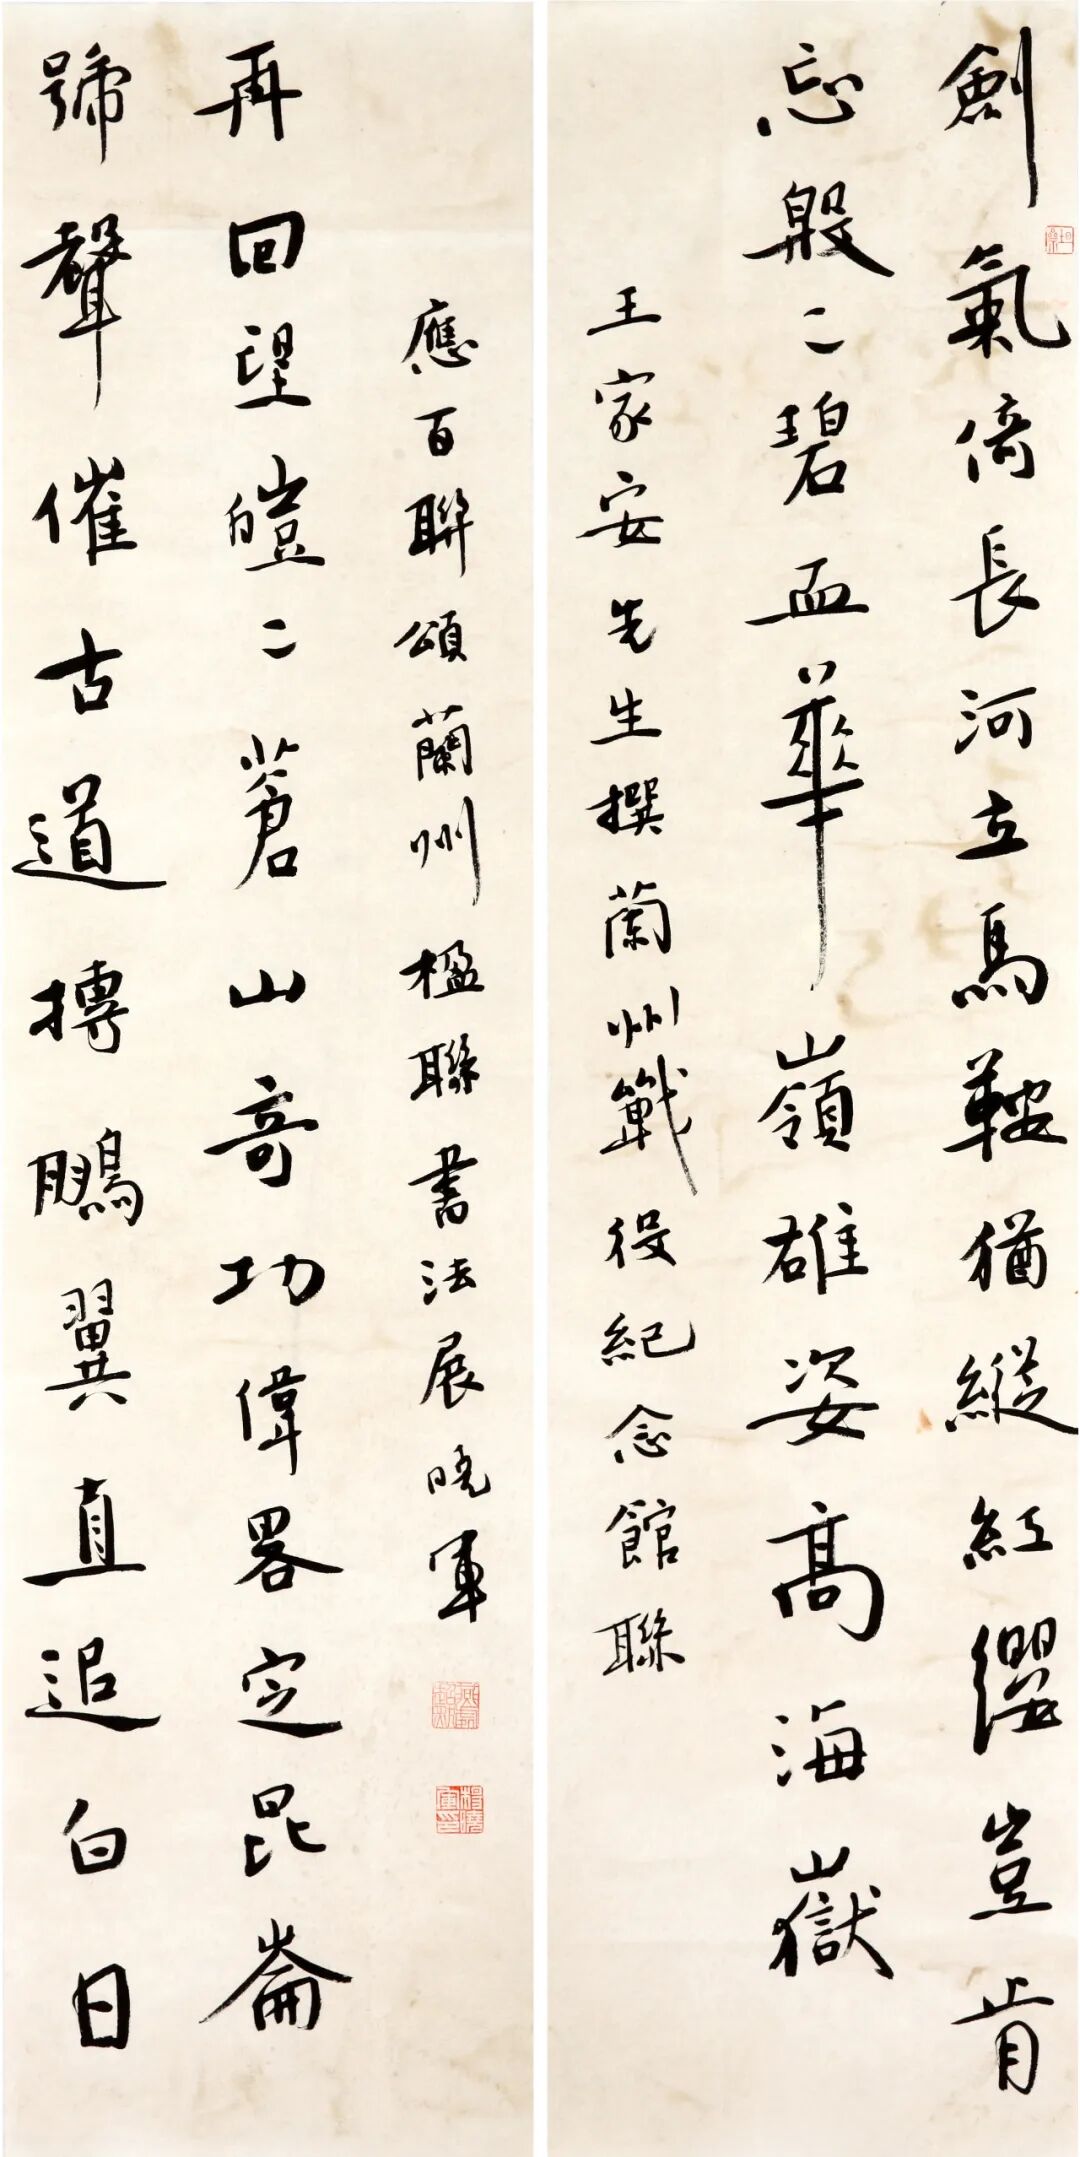 劍氣倚長河立馬鞍猶縱紅纓豈肯
忘殷々碧血華嶺雄姿高海嶽
王家安先生撰蘭州戰役紀念館聯
號聲催古道摶鵬翼直追白日
再回望皚々蒼山奇功偉畧定昆崙
應百聯頌蘭州楹聯書法展曉軍